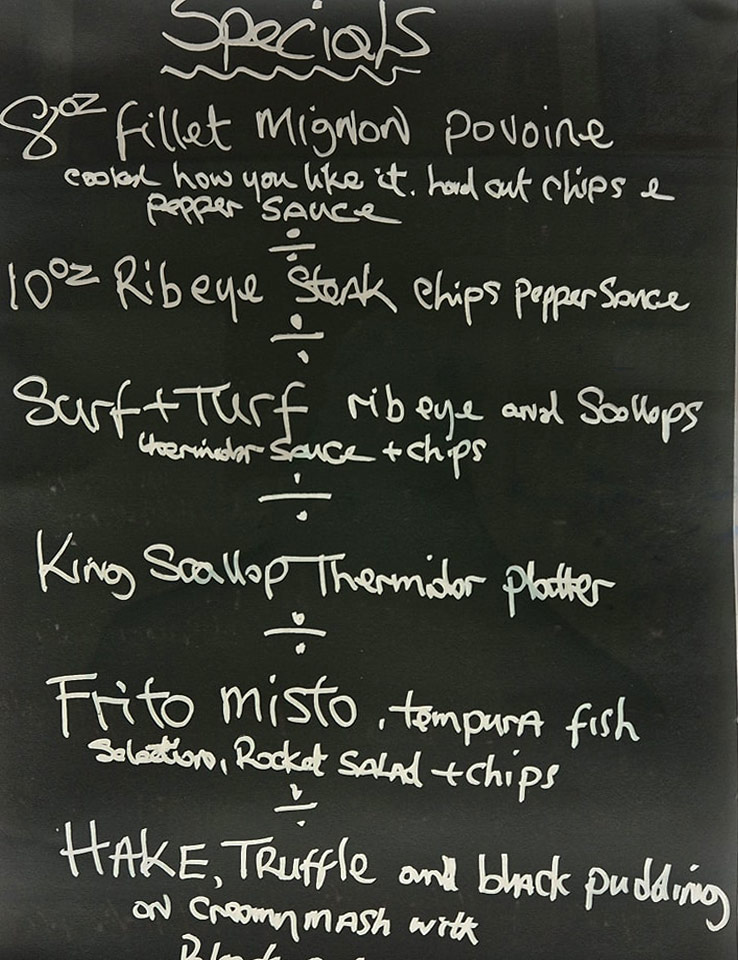 Specials
8oz fillet mignon povoine
cooked how you like it. hand cut chips e
pepper sauce
10oz Ribeye Steak chips pepper sauce
Surf + Turf rib eye and Scallops
thermidor sauce + chips
King Scallop Thermidor platter
Frito misto, tempura fish
Selection, Rocket SALAD + chips
HAKE, TRuffle and black pudding
on creamy MASH with